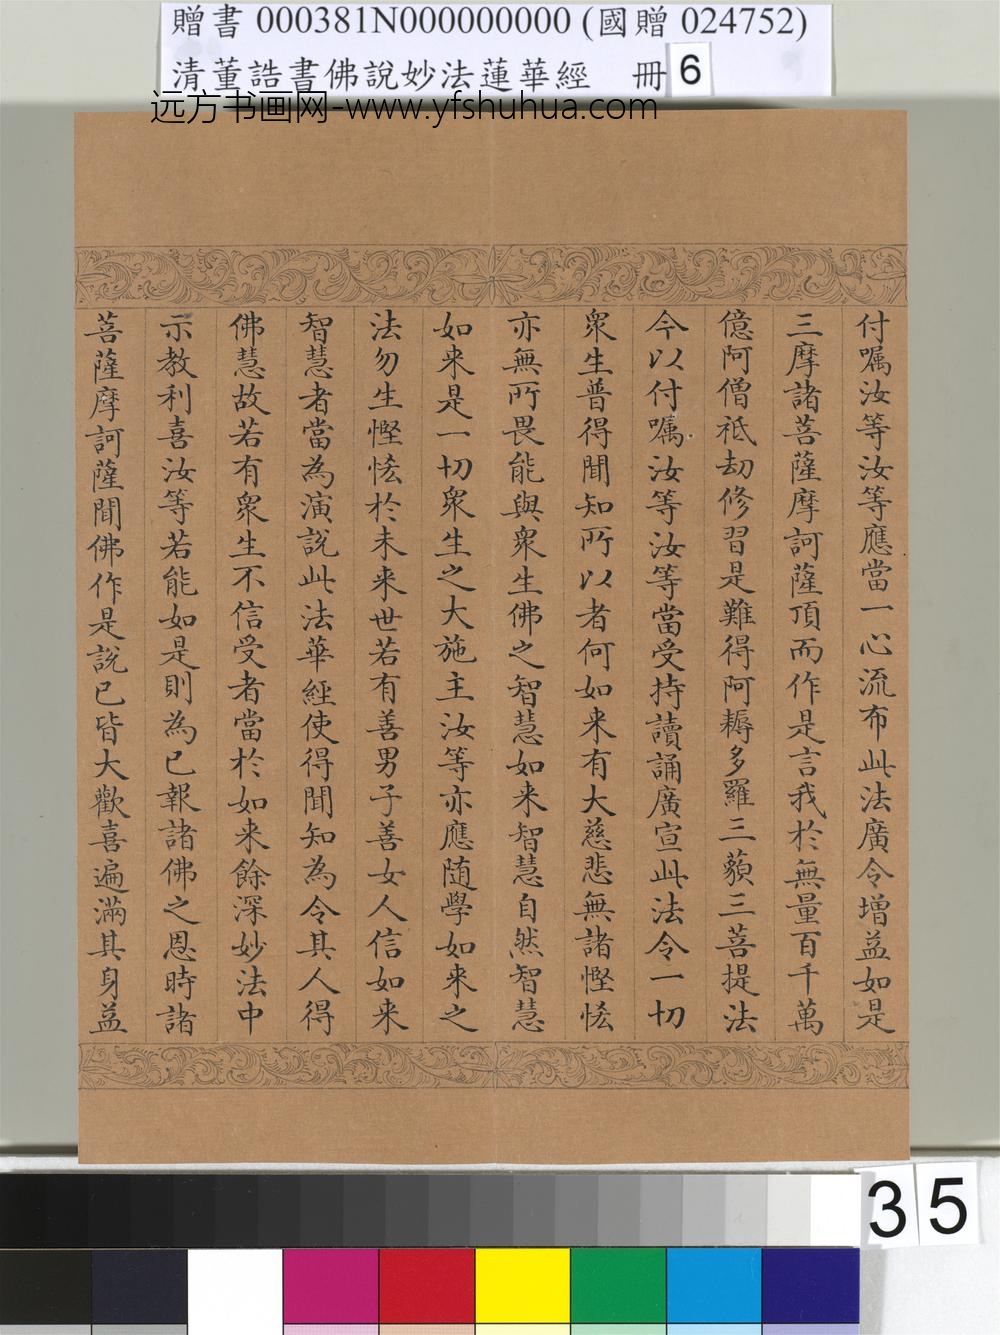 贈書 000381N000000000 (國贈 024752)
清董誥書佛說妙法蓮華經 冊 6
远方书画网-www.yfshuhua.com
付嘱汝等汝等應當一心流布此法廣令增益如是
三摩諸菩薩摩訶薩頂而作是言我於無量百千萬
億阿僧祇劫修習是難得阿耨多羅三藐三菩提法
今以付嘱汝等汝等當受持讀誦廣宣此法令一切
衆生普得聞知所以者何如来有大慈悲無諸慳悋
亦無所畏能與衆生佛之智慧如来智慧自然智慧
如来是一切衆生之大施主汝等亦應随學如来之
法勿生慳悋於未来世若有善男子善女人信如来
智慧者當為演說此法華經使得聞知為令其人得
佛慧故若有衆生不信受者當於如来餘深妙法中
示教利喜汝等若能如是則為已報諸佛之恩時諸
菩薩摩訶薩聞佛作是說已皆大歡喜遍滿其身益
35